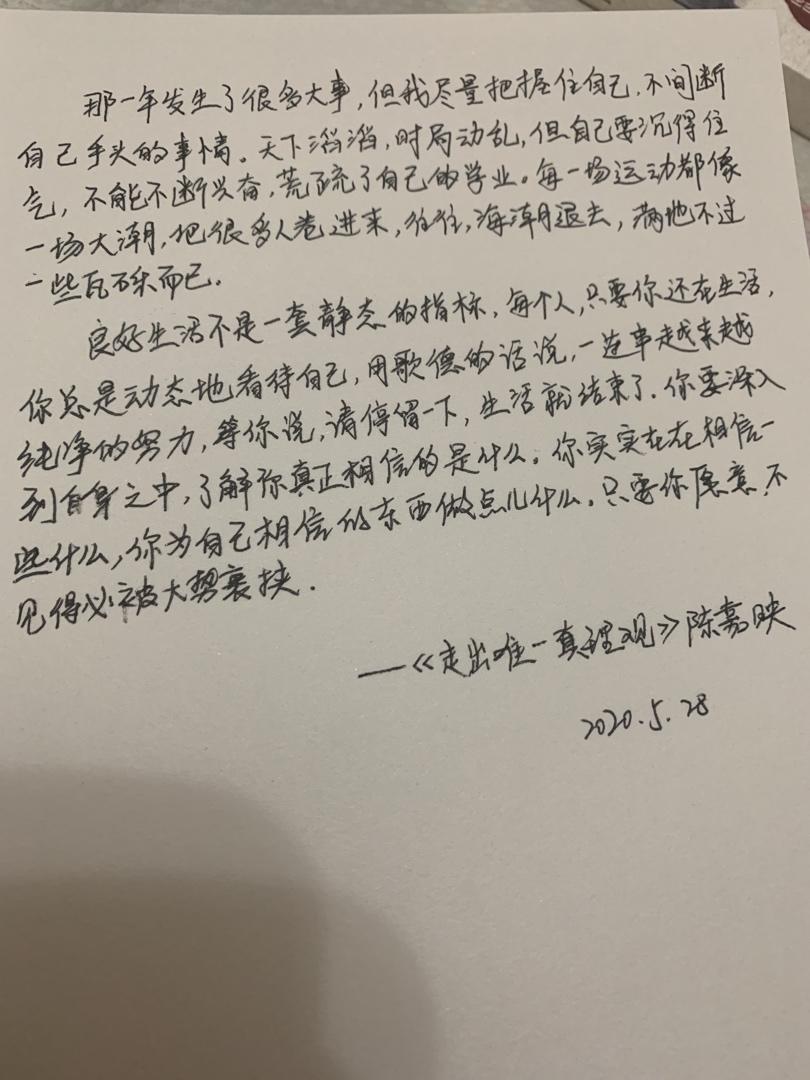 那一年发生了很多大事，但我尽量把握住自己，不间断
自己手头的事情。天下滔滔，时局动乱，但自己要沉得住
气，不能不断兴奋，荒疏了自己的学业。每一场运动都像
一场大潮，把很多人卷进来，往往，海潮退去，满地不过
一些瓦砾而已．
良好生活不是一套静态的指标，每个人，只要你还在生活，
你总是动态地看待自己，用歌德的话说，一连串越来越
纯净的努力，等你说，请停留一下，生活就结束了．你要深入
到自身之中，了解你真正相信的是什么。你实实在在相信一
些什么，你为自己相信的东西做点儿什么．只要你愿意，不
见得必被大势裹挟．
——《走出唯一真理观》陈嘉映
2020.5.28